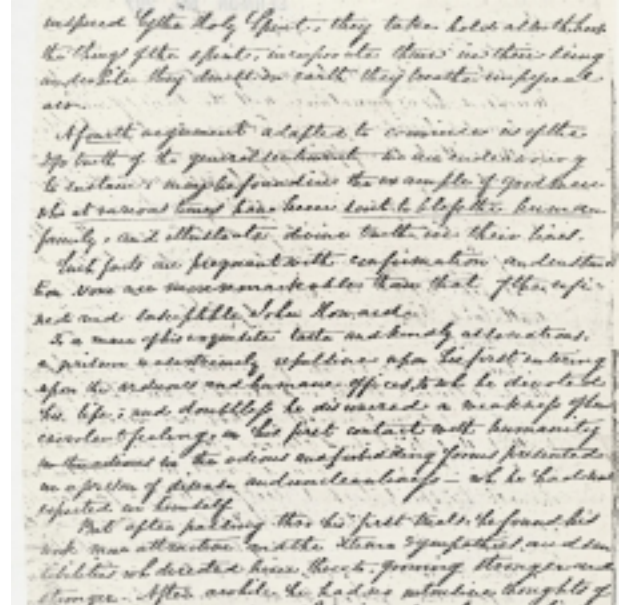 inspired by the Holy Spirit, they take hold
the things of the spirit, incorporate them in their being
and while they dwelt on earth they
A fourth argument adapted to convince us of the
truth of the general sentiment we are endeavoring
to sustain, may be found in the example of good men
who at various times have been sent to bless the human
family, and illustrate divine truth in their lives.
Such facts are pregnant with confirmation and
none are more remarkable than that of the refi-
ned and susceptible John Howard.
To a man of his exquisite taste and kindly associations,
a prison is extremely repulsive upon his first entering
upon the arduous and humane offices, to wh he devoted
his life, and doubtless he discovered a weakness of
feelings, in his first contact with humanity
in the odious and forbidding forms presented
in a prison of disease and uncleanliness — wh he had not
expected in himself.
But after passing thro his first trials, he found his
work more attractive and the sympathies and
wh directed him there, growing stronger and
stronger. After awhile he had no intrusive thoughts of